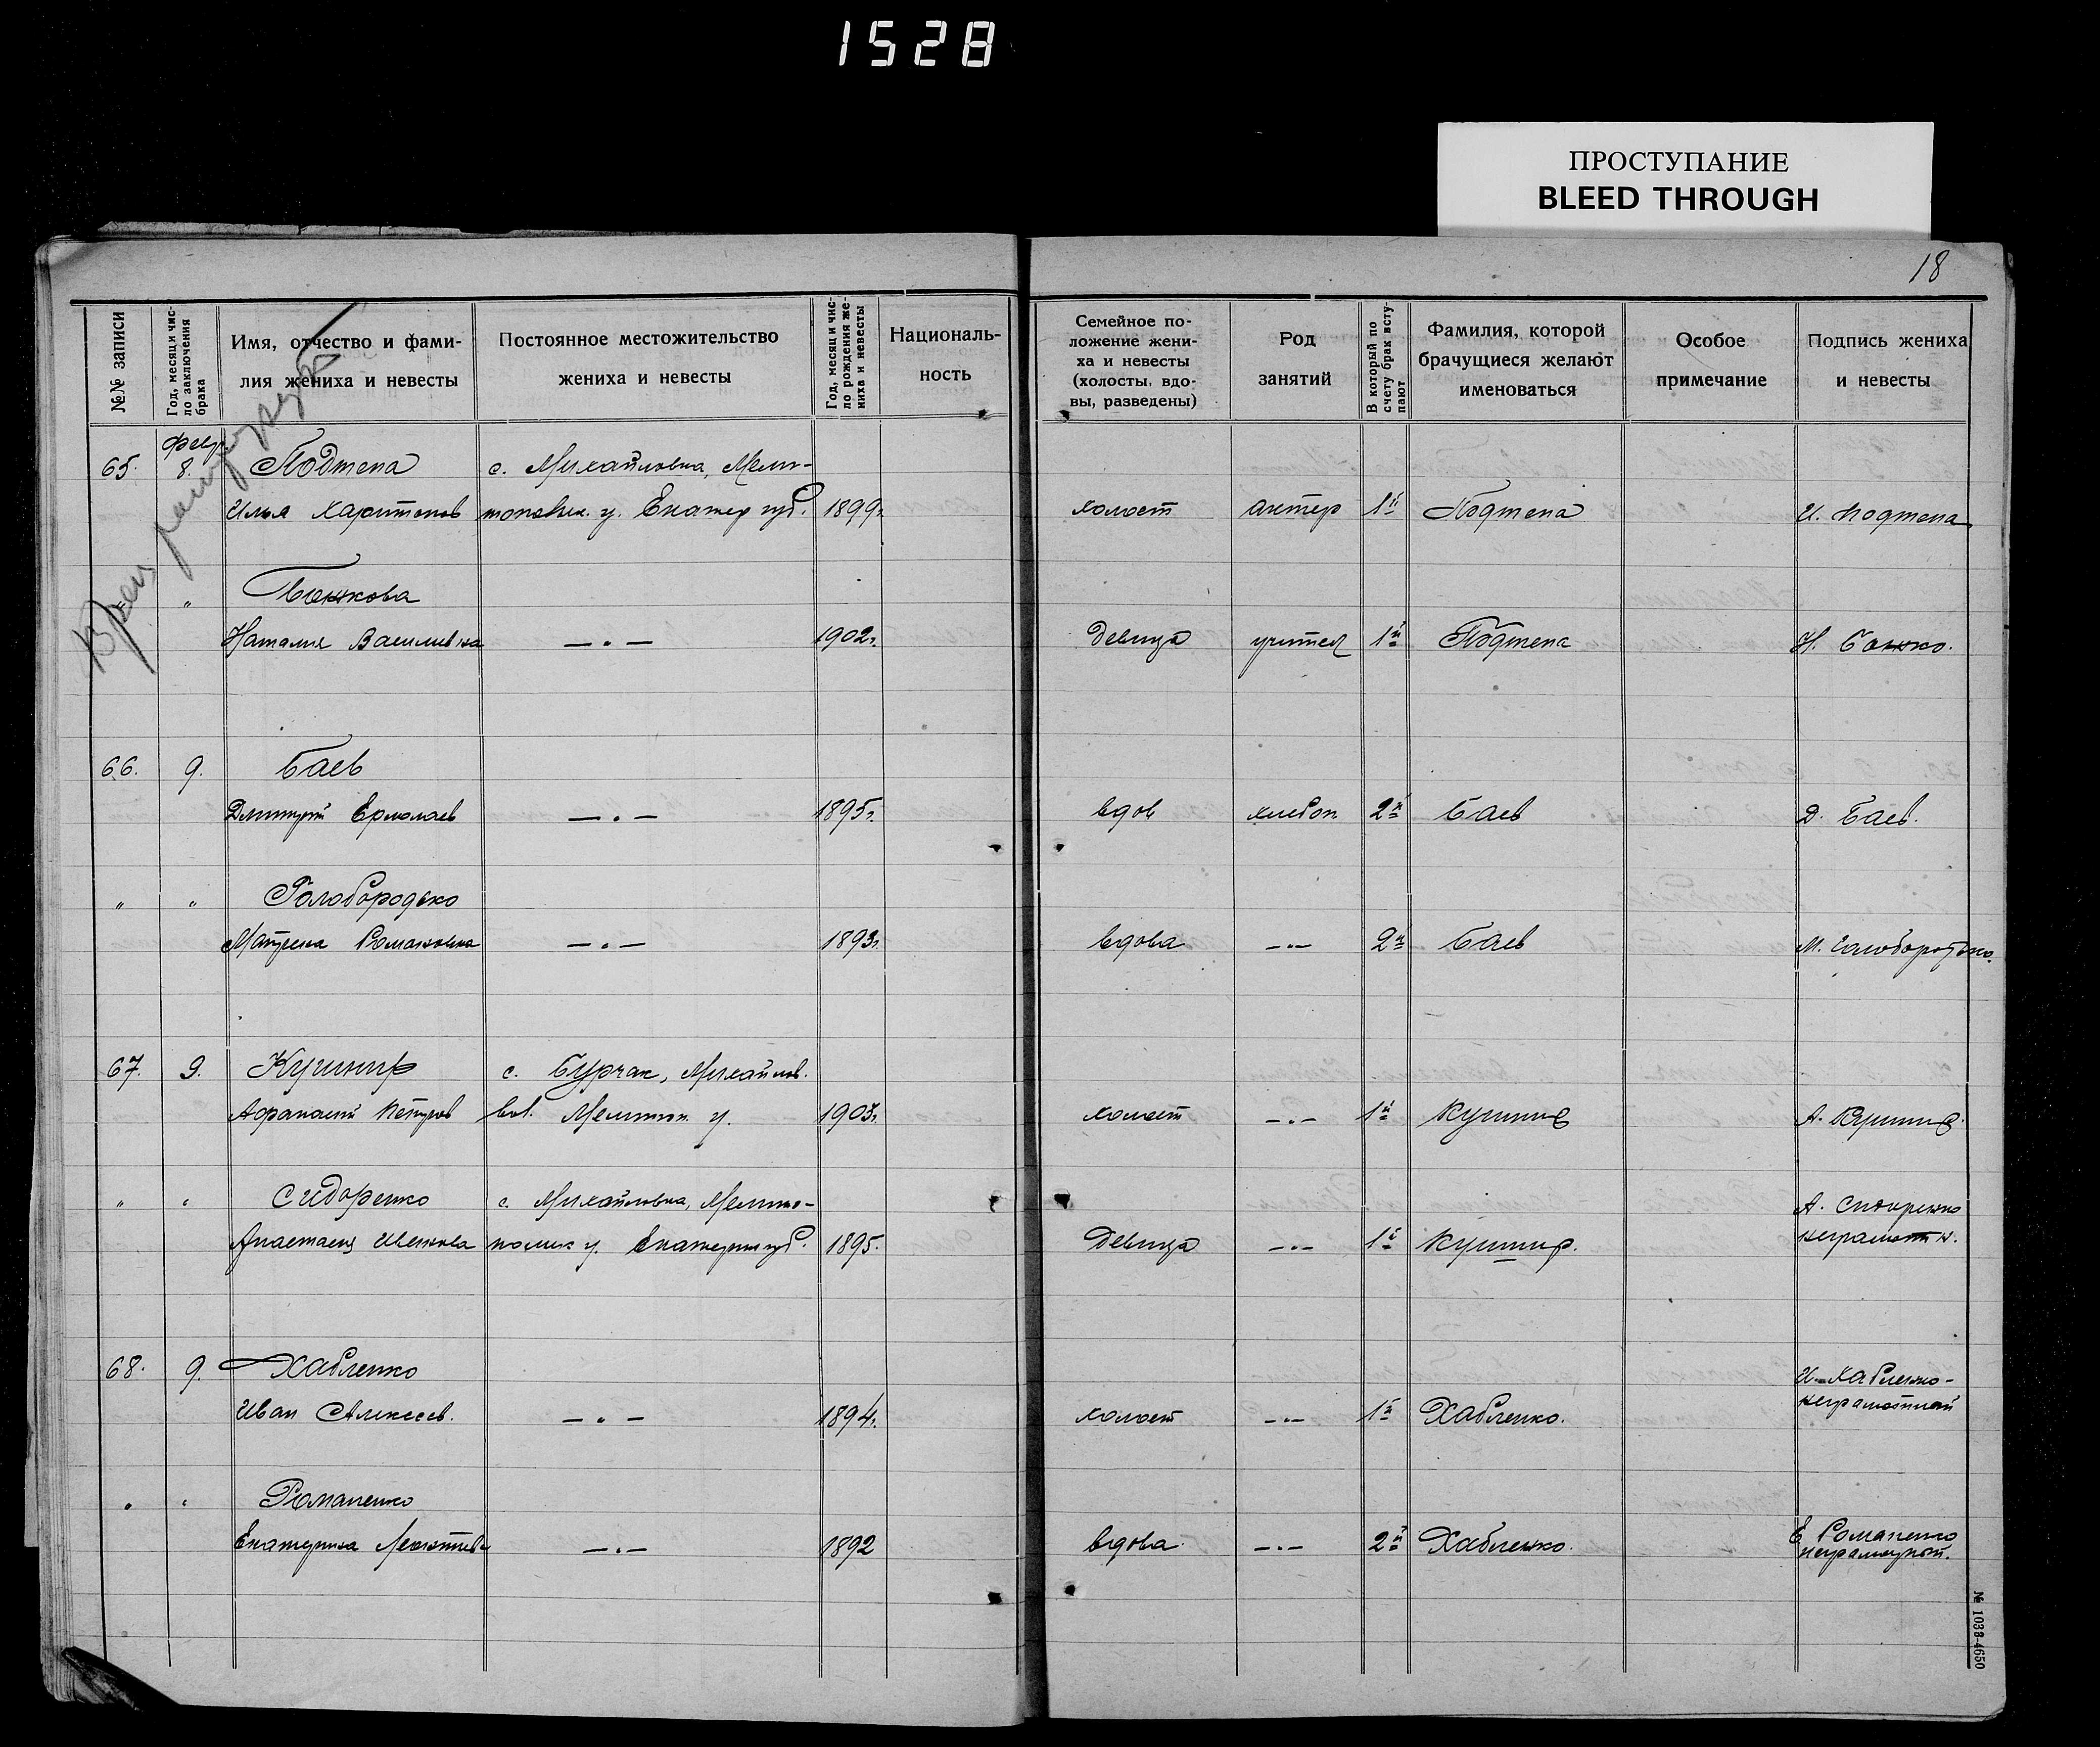 1528
ПРОСТУПАНИЕ
BLEED THROUGH
18
№№ записи
Год, месяц и чис-
ло заключения
брака
Имя, отчество и фами-
лия жениха и невесты
Постоянное местожительство
жениха и невесты
Год, месяц и чис-
ло рождения же-
ниха и невесты
Националь-
ность
Семейное по-
ложение жени-
ха и невесты
(холосты, вдо-
вы, разведены)
Род
занятий
В который по
счету брак всту-
пают
Фамилия, которой
брачущиеся желают
именоваться
Особое
примечание
Подпись жениха
и невесты
февр.
65. 8. Подтепа с. Михайловка, Мели-
Илья Харитонов топольск. у. Екатер губ. 1899г. холост актер 1й Подтепа И. Подтепа
" Божкова
Наталия Васильевна —„— 1902г. девица учител 1й Подтепа Н. Божко.
66. 9. Баев
Дмитрий Ермолаев —„— 1895г. вдов хлебоп 2й Баев Д. Баев.
" " Голобородько
Матрена Романовна —„— 1893г. вдова —„— 2й Баев М. Голобородько.
67. 9. Кушнир с. Бурчак, Михайлов.
Афанасий Петров вол. Мелитоп. у. 1903г. холост —„— 1й Кушнир А. Кушнир.
" " Сидоренко с. Михайловка, Мелито- А. Сидоренко
Анастасия Иванова польск у. Екатерин губ. 1895. девица —„— 1й Кушнир. неграмотн.
68. 9. Хабленко И. Хабленко-
Иван Алексеев. —„— 1894г. холост —„— 1й Хабленко. неграмотный
" " Романенко
Екатерина Леонтьев —„— 1892 вдова —„— 2й Хабленко. Е Романенко
неграмотн.
№ 1033-4650